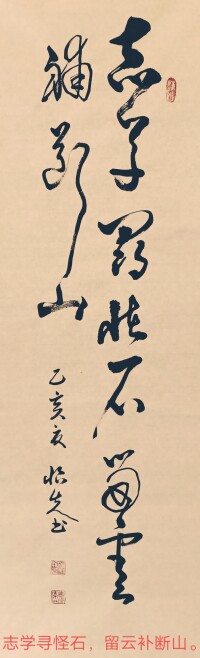 志学尋怪石留雲
補斷山
乙亥夏
志学寻怪石，留云补断山。